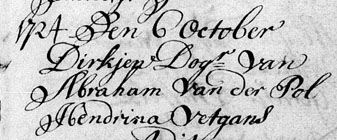 1724 Den 6 October
Dirkjen Dogr. van
Abraham van der Pol
Hendrina Vetgans